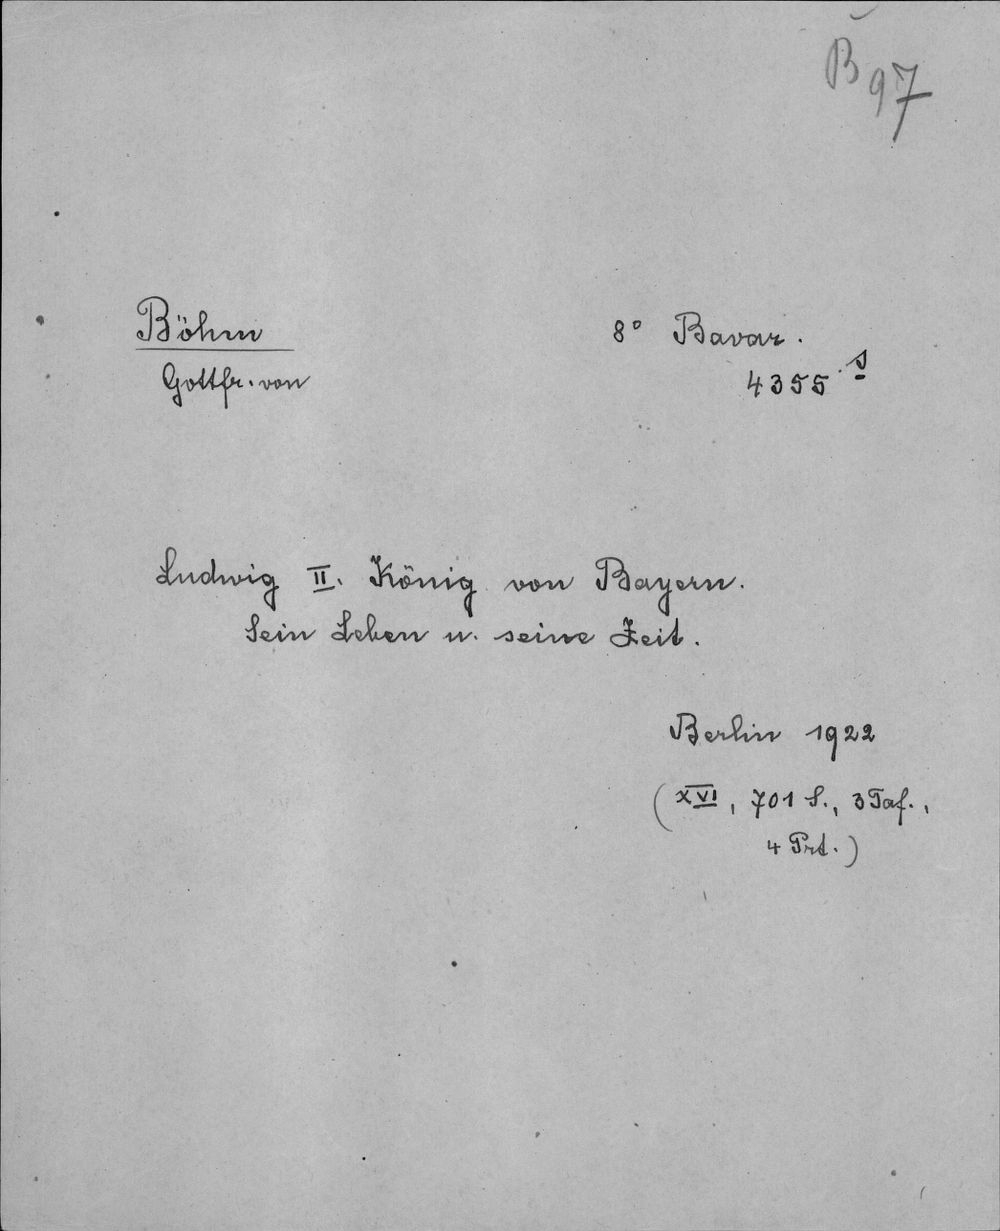 B 97
Böhm
Gottfr. von
8° Bavar.
4355 s
Ludwig II. König von Bayern.
Sein Leben u. seine Zeit.
Berlin 1922
(XVI, 701 S., 3 Taf.,
4 Prt.)